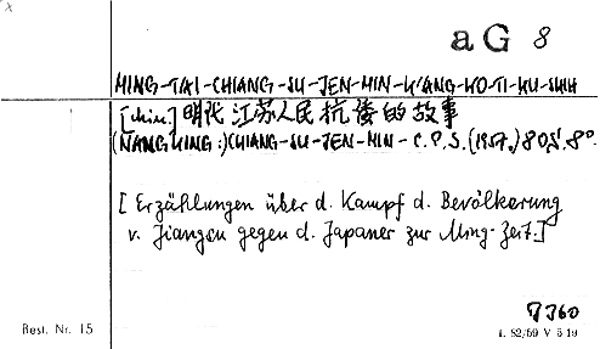 x
aG 8
MING-TAI-CHIANG-SU-JEN-MIN-K'ANG-WO-TI-KU-SHIH
[chin.] 明代江苏人民抗倭的故事
(NANGKING:) CHIANG-SU-JEN-MIN-C.P.S. (1957.) 80 S. 8°.
[Erzählungen über d. Kampf d. Bevölkerung
v. Jiangsu gegen d. Japaner zur Ming-Zeit.]
Best. Nr. 15